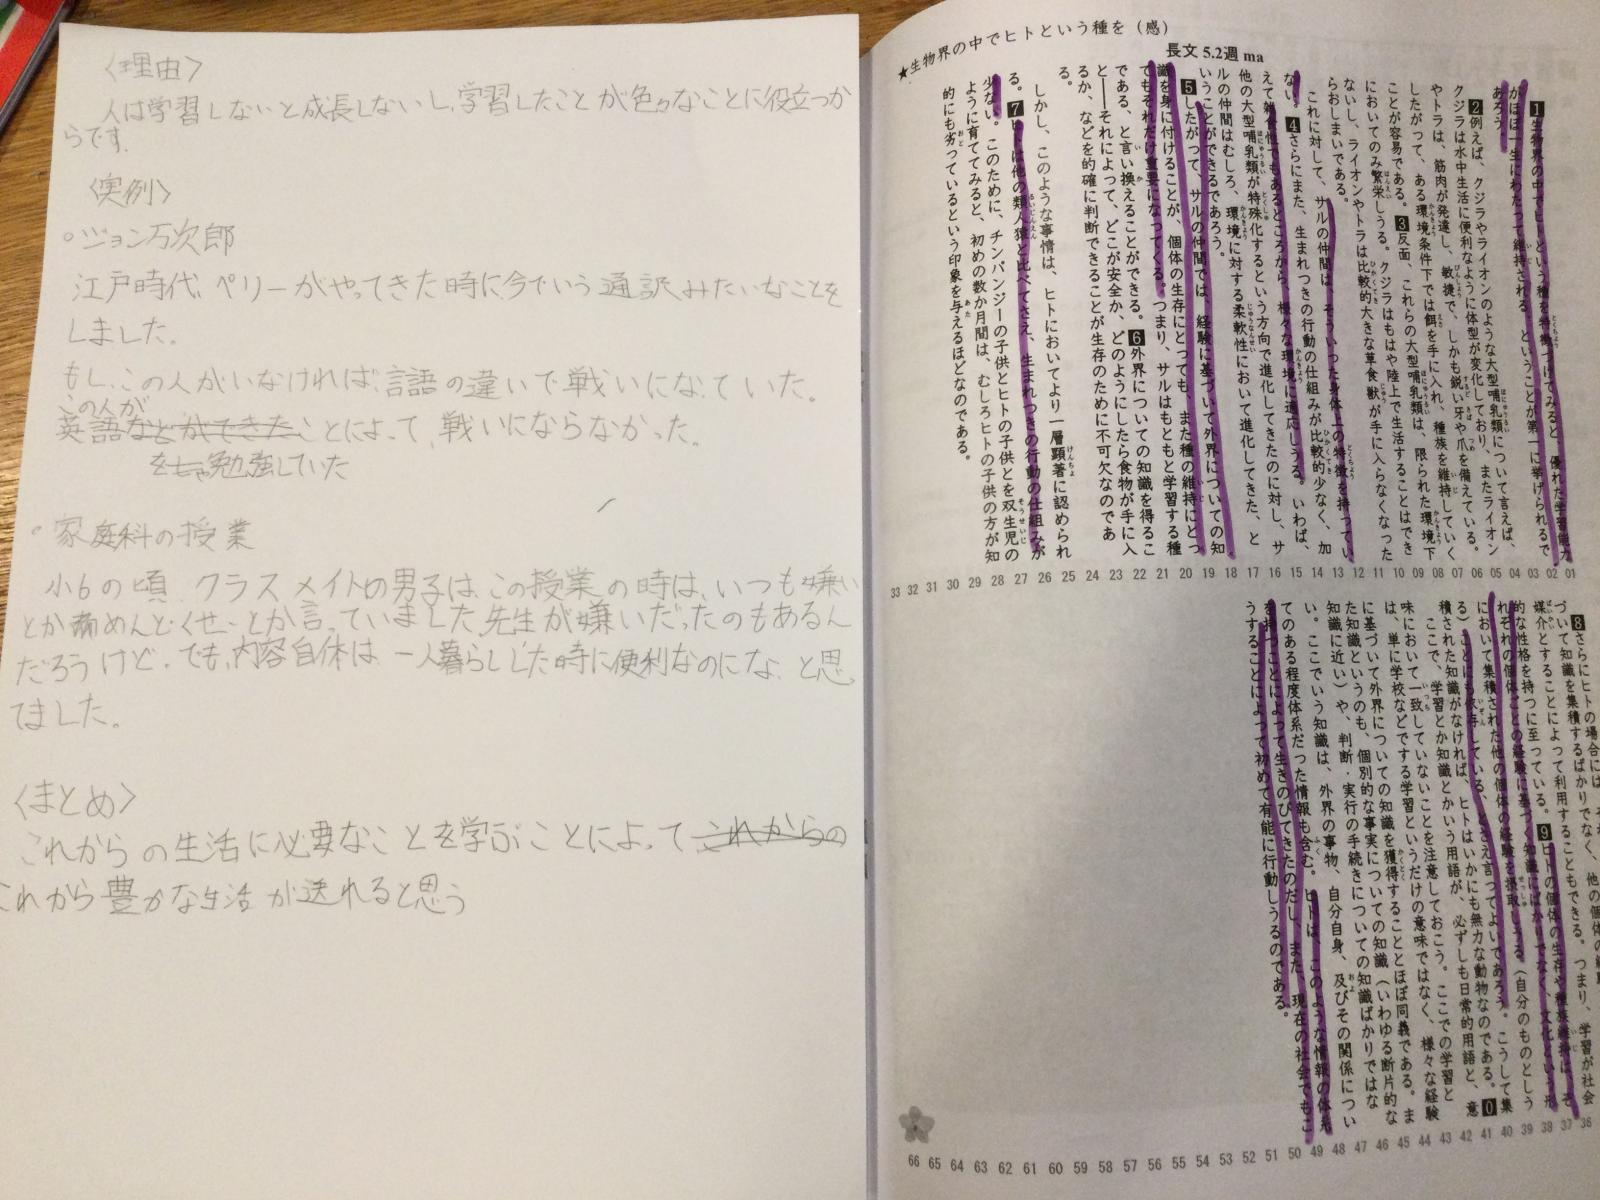 〈理由〉
人は学習しないと成長しないし、学習したことが色々なことに役立つか
らです.
〈実例〉
○ジョン万次郎
江戸時代、ペリーがやってきた時に、今でいう通訳みたいなことを
しました.
もし、この人がいなければ、言語の違いで戦いになっていた。
この人が
英語などができたことによって、戦いにならなかった。
を 勉強していた
○家庭科の授業
小6の頃、クラスメイトの男子は、この授業の時は、いつも嫌い
とか めんどくせーとか言っていました、先生が嫌いだったのもあるん
だろうけど、でも、内容自体は、一人暮らしした時に便利なのにな、と思
てました。
〈まとめ〉
これからの生活に必要なことを学ぶことによって これからの
これから豊かな生活が送れると思う
★生物界の中でヒトという種を（感）
長文 5.2週 ma
1生物界の中でヒトという種を特徴づけてみると、優れた学習能力
がほぼ一生にわたって維持される、ということが第一に挙げられるで
あろう。
2例えば、クジラやライオンのような大型哺乳類について言えば、
クジラは水中生活に便利なように体型が変化しており、またライオン
やトラは、筋肉が発達し、敏捷で、しかも鋭い牙や爪を備えている。
したがって、ある環境条件下では餌を手に入れ、種族を維持していく
ことが容易である。3反面、これらの大型哺乳類は、限られた環境下
においてのみ繁栄しうる。クジラはもはや陸上で生活することはでき
ないし、ライオンやトラは比較的大きな草食獣が手に入らなくなった
らおしまいである。
これに対して、サルの仲間は、そういった身体上の特徴を持ってい
ない。4さらにまた、生まれつきの行動の仕組みが比較的少なく、加
えて雑食性でもあるところから、様々な環境に適応しうる。いわば、
他の大型哺乳類が特殊化するという方向で進化してきたのに対し、サ
ルの仲間はむしろ、環境に対する柔軟性において進化してきた、と
いうことができるであろう。
5したがって、サルの仲間では、経験に基づいて外界についての知
識を身に付けることが、個体の生存にとっても、また種の維持にとっ
てもそれだけ重要になってくる。つまり、サルはもともと学習する種
である、と言い換えることができる。6外界についての知識を得るこ
と――それによって、どこが安全か、どのようにしたら食物が手に入
るか、などを的確に判断できることが生存のために不可欠なのであ
る。
しかし、このような事情は、ヒトにおいてより一層顕著に認められ
る。7ヒトは他の類人猿と比べてさえ、生まれつきの行動の仕組みが
少ない。このために、チンパンジーの子供とヒトの子供とを双生児の
ように育ててみると、初めの数か月間は、むしろヒトの子供の方が知
的にも劣っているという印象を与えるほどなのである。
01 02 03 04 05 06 07 08 09 10 11 12 13 14 15 16 17 18 19 20 21 22 23 24 25 26 27 28 29 30 31 32 33
8さらにヒトの場合には、
づいて知識を集積するばかりでなく、他の個体の経験
媒介とすることによって利用することもできる。つまり、学習が社会
的な性格を持つに至っている。9ヒトの個体の生存や種族維持は、そ
れぞれの個体ごとの経験に基づく知識にばかりでなく、文化という形
において集積された他の個体の経験を摂取しうる（自分のものとしう
る）ことにも依存している、とさえ言ってよいであろう。こうして集
積された知識がなければ、ヒトはいかにも無力な動物なのである。0
ここで、学習とか知識とかいう用語が、必ずしも日常的用語と、意
味において一致していないことを注意しておこう。ここでの学習と
は、単に学校などでする学習というだけの意味ではなく、様々な経験
に基づいて外界についての知識を獲得することとほぼ同義である。ま
た知識というのも、個別的な事実についての知識（いわゆる断片的な
知識に近い）や、判断・実行の手続きについての知識ばかりではな
い。ここでいう知識は、外界の事物、自分自身、及びその関係につい
てのある程度体系だった情報も含む。ヒトは、このような情報の体系
を持つことによって生きのびてきたのだし、また、現在の社会でもこ
うすることによって初めて有能に行動しうるのである。
36 37 38 39 40 41 42 43 44 45 46 47 48 49 50 51 52 53 54 55 56 57 58 59 60 61 62 63 64 65 66